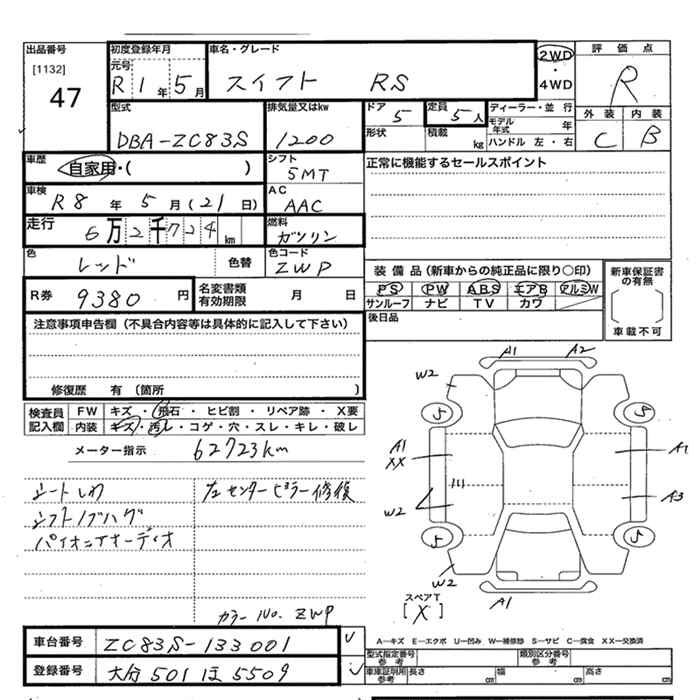 出品番号
[1132]
47
初度登録年月
元号
R 1年 5月
車名・グレード
スイフト RS
2WD
・
4WD
評価点
R
外装 内装
C B
型式
DBA-ZC83S
排気量又はkw
1200
ドア
5
形状
定員
5人
積載
kg
ディーラー・並行
モデル年式 年
ハンドル 左・右
車歴
自家用・( )
シフト
5MT
正常に機能するセールスポイント
車検
R8年 5月(21日)
AC
AAC
走行
6万2千724km
燃料
ガソリン
色
レッド
色替
色コード
ZWP
R券
9380円
名変書類有効期限
月 日
装備品(新車からの純正品に限り○印)
PS PW ABS エアB アルミW
サンルーフ ナビ TV カワ
後日品
新車保証書の有無
車載不可
注意事項申告欄(不具合内容等は具体的に記入して下さい)
修復歴 有(箇所 )
検査員記入欄
FW キズ・飛石・ヒビ割・リペア跡・X要
内装 キズ・汚レ・コゲ・穴・スレ・キレ・破レ
メーター指示 62723km
シートしわ
シフトノブハグ
パイオニアオーディオ
左センターピラー修復
カラーNo. ZWP
A1 A2
W2
5 5
A1
XX
A1
W2
A3
5 5
W2
A1
スペアT
[X]
車台番号 ZC83S-133001
登録番号 大分 501 ほ 5509
A―キズ E―エクボ U―凹み W―補修跡 S―サビ C―腐食 XX―交換済
型式指定番号参考
類別区分番号参考
車庫証明用参考
長さ cm 幅 cm 高さ cm